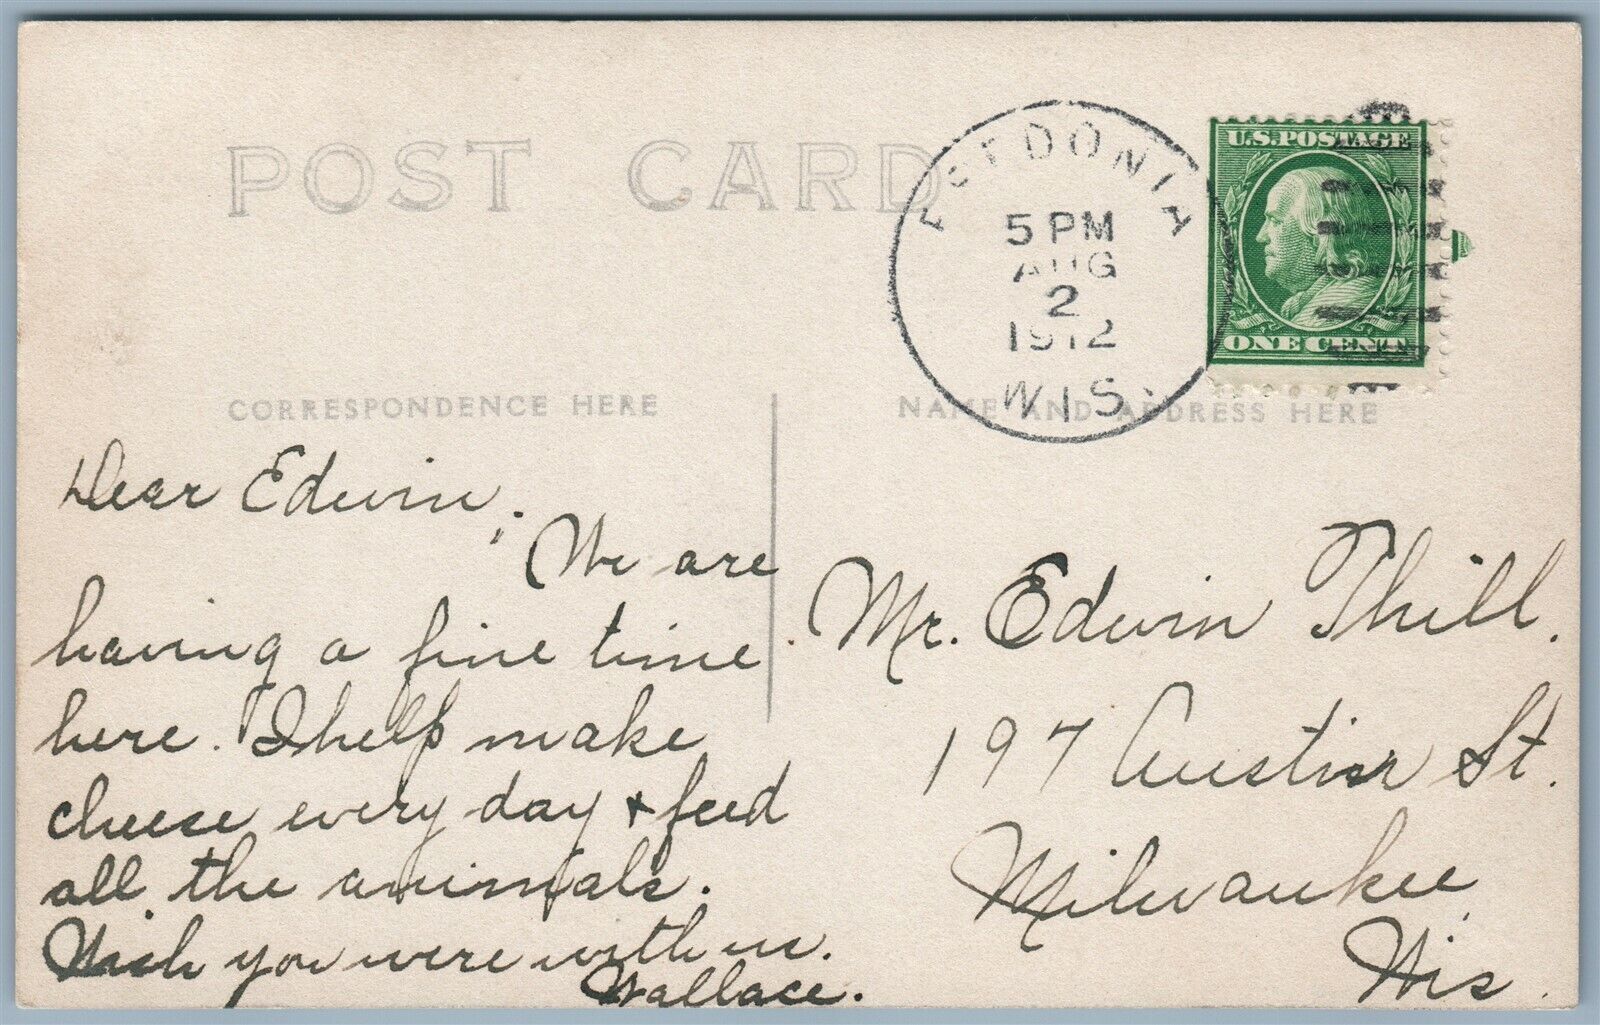 POST CARD
FREDONIA
5 PM
AUG
2
1912
WIS.
U.S. POSTAGE
ONE CENT
CORRESPONDENCE HERE
NAME AND ADDRESS HERE
Dear Edwin,
We are
having a fine time
here. I help make
cheese every day + feed
all the animals.
Wish you were with us.
Wallace.
Mr. Edwin Thill.
197 Austin St.
Milwaukee,
Wis.